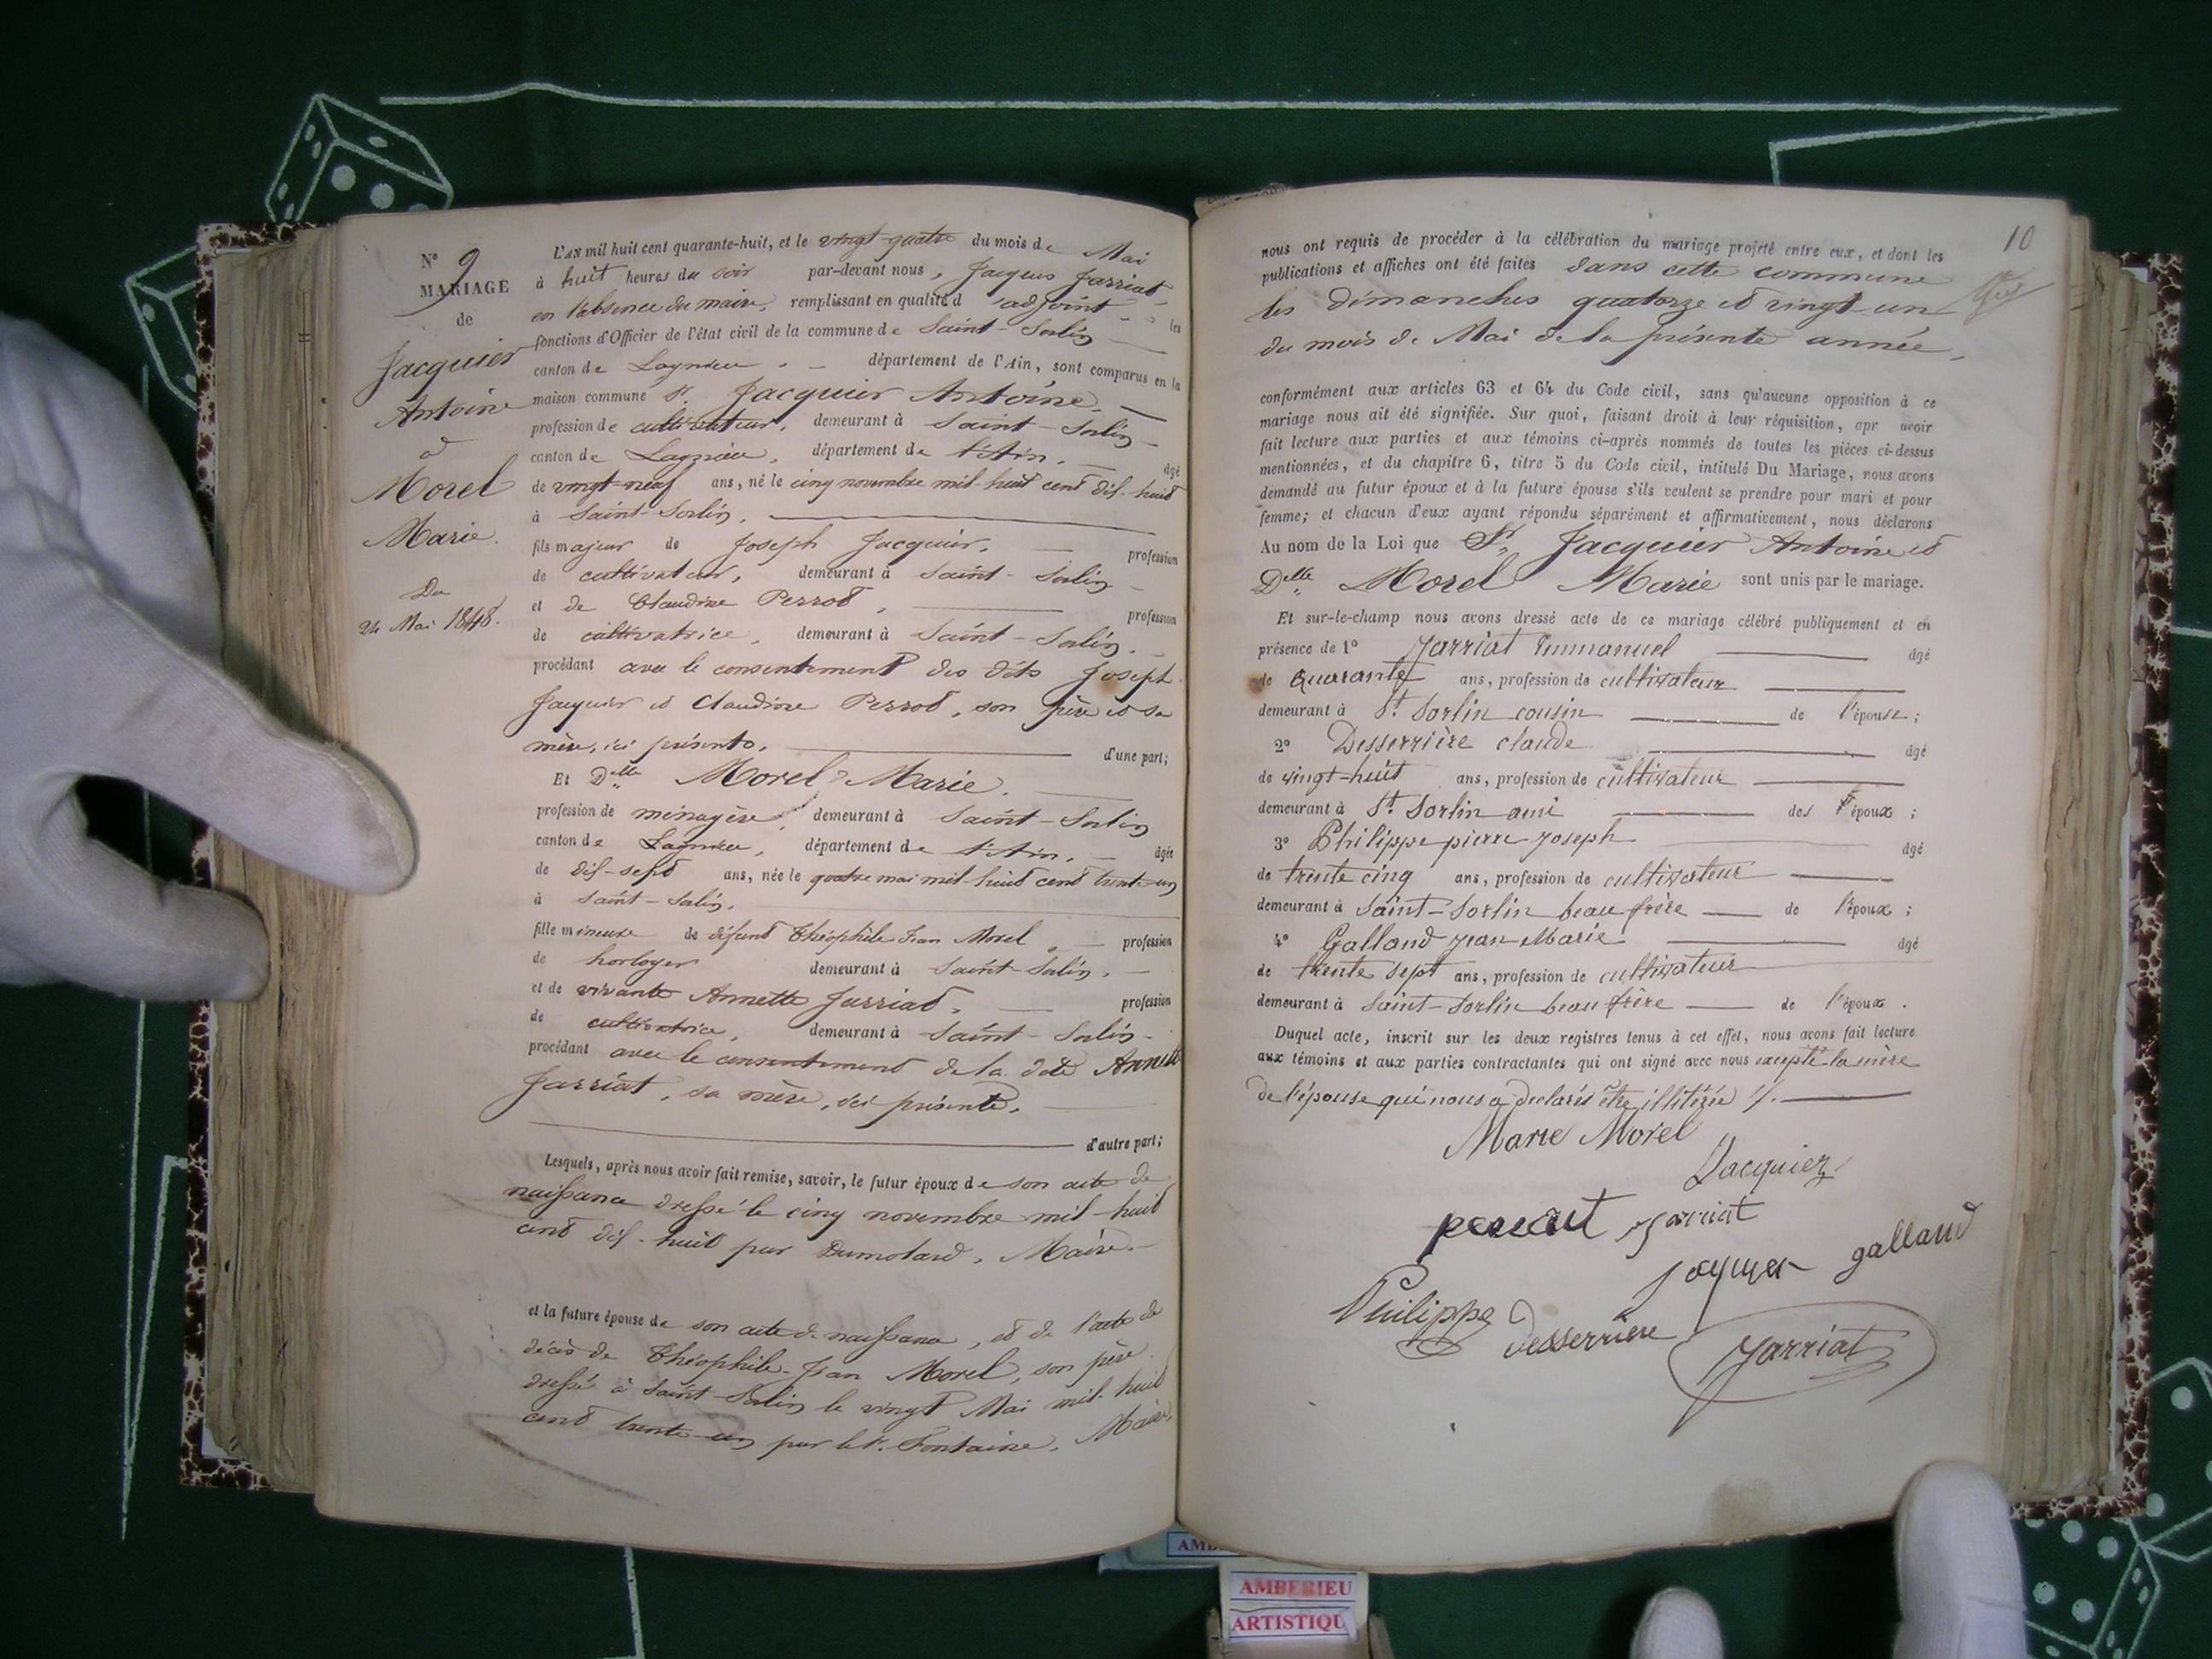 N° 9
MARIAGE
de
Jacquier
Antoine
à
Morel
Marie.
Du
24 Mai 1848.
L'AN mil huit cent quarante-huit, et le vingt-quatre du mois de Mai
à huit heures du soir par-devant nous, Jacques Jarriat,
en l'absence du maire, remplissant en qualité d'adjoint les
fonctions d'Officier de l'état civil de la commune de Saint-Sorlin
canton de Lagnieu, département de l'Ain, sont comparus en la
maison commune Sr. Jacquier Antoine,
profession de cultivateur, demeurant à Saint-Sorlin
canton de Lagnieu, département de l'Ain, âgé
de vingt-neuf ans, né le cinq novembre mil-huit cent dix-huit
à Saint-Sorlin,
fils majeur de Joseph Jacquier, profession
de cultivateur, demeurant à Saint-Sorlin
et de Claudine Perrot, profession
de cultivatrice, demeurant à Saint-Sorlin,
procédant avec le consentement des dits Joseph
Jacquier et Claudine Perrot, son père et sa
mère, ici présents, d'une part;
Et Delle Morel Marie.
profession de ménagère, demeurant à Saint-Sorlin
canton de Lagnieu, département de l'Ain, âgée
de dix-sept ans, née le quatre mai mil-huit cent trente-un
à Saint-Sorlin,
fille mineure de défunt Théophile Jean Morel, profession
de horloger demeurant à Saint-Sorlin,
et de vivante Annette Jarriat, profession
de cultivatrice, demeurant à Saint-Sorlin
procédant avec le consentement de la dite Annette
Jarriat, sa mère, ici présente,
d'autre part;
Lesquels, après nous avoir fait remise, savoir, le futur époux de son acte de
naissance dressé le cinq novembre mil-huit
cent dix-huit par Dumolard, Maire.
et la future épouse de son acte de naissance, et de l'acte de
décès de Théophile-Jean Morel, son père
dressé à Saint-Sorlin le vingt Mai mil-huit
cent trente-un par le Sr. Fontaine, Maire,
10
nous ont requis de procéder à la célébration du mariage projeté entre eux, et dont les
publications et affiches ont été faites dans cette commune
les dimanches quatorze et vingt-un
du mois de Mai de la présente année,
conformément aux articles 63 et 64 du Code civil, sans qu'aucune opposition à ce
mariage nous ait été signifiée. Sur quoi, faisant droit à leur réquisition, apr avoir
fait lecture aux parties et aux témoins ci-après nommés de toutes les pièces ci-dessus
mentionnées, et du chapitre 6, titre 5 du Code civil, intitulé Du Mariage, nous avons
demandé au futur époux et à la future épouse s'ils veulent se prendre pour mari et pour
femme; et chacun d'eux ayant répondu séparément et affirmativement, nous déclarons
Au nom de la Loi que Sr. Jacquier Antoine et
Delle Morel Marie sont unis par le mariage.
Et sur-le-champ nous avons dressé acte de ce mariage célébré publiquement et en
présence de 1° Jarriat Emmanuel âgé
de Quarante ans, profession de cultivateur
demeurant à St. Sorlin cousin de l'épouse;
2° Desserrière claude âgé
de vingt-huit ans, profession de cultivateur
demeurant à St. Sorlin ami des époux;
3° Philippe pierre Joseph âgé
de trente cinq ans, profession de cultivateur
demeurant à Saint-Sorlin beau frère de l'époux;
4° Galland Jean Marie âgé
de trente sept ans, profession de cultivateur
demeurant à Saint-Sorlin beau frère de l'époux.
Duquel acte, inscrit sur les deux registres tenus à cet effet, nous avons fait lecture
aux témoins et aux parties contractantes qui ont signé avec nous excepté la mère
de l'épouse qui nous a déclarée être illitérée
Marie Morel
Jacquier
Jarriat
galland
Philippe
Desserriere
Jarriat
AMBERIEU
ARTISTIQU